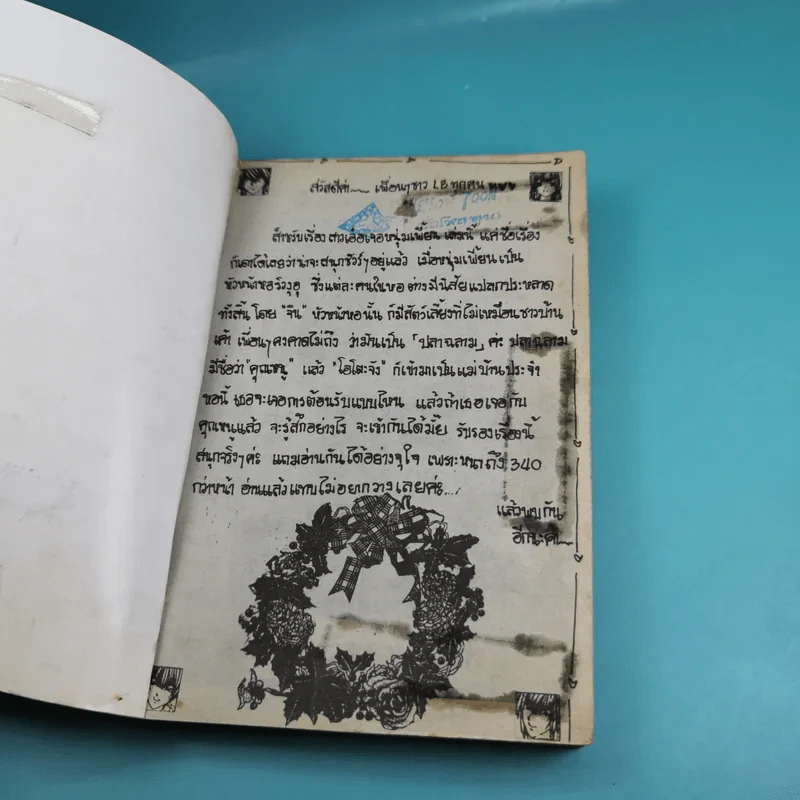 สวัสดีค่ะ~~ เพื่อนๆชาว LB ทุกคน
สำหรับเรื่อง สาวเอ๋อเจอหนุ่มเพี้ยน เล่มนี้ แค่ชื่อเรื่อง
ก็เดาได้เลยว่าน่าจะสนุกชัวร์ๆอยู่แล้ว เมื่อหนุ่มเพี้ยนเป็น
หัวหน้าหอ ซึ่งแต่ละคนในหอ ต่างมีนิสัยแปลกประหลาด
ทั้งสิ้น โดย "จิน" หัวหน้าหอนั้น ก็มีสัตว์เลี้ยงที่ไม่เหมือนชาวบ้าน
เค้า เพื่อนๆคงคาดไม่ถึง ว่ามันเป็น 「ปลาฉลาม」 ค่ะ ปลาฉลาม
มีชื่อว่า "คุณหนู" แล้ว "โอโตะจัง" ก็เข้ามาเป็นแม่บ้านประจำ
หอนี้ เธอจะเจอการต้อนรับแบบไหน แล้วถ้าเธอเจอกับ
คุณหนูแล้ว จะรู้สึกอย่างไร จะเข้ากันได้มั้ย รับรองเรื่องนี้
สนุกจริงๆค่ะ แถมอ่านกันได้อย่างจุใจ เพราะหนาถึง 340
กว่าหน้า อ่านแล้วแทบไม่อยากวางเลยค่ะ...
แล้วพบกัน
อีกนะคะ~~